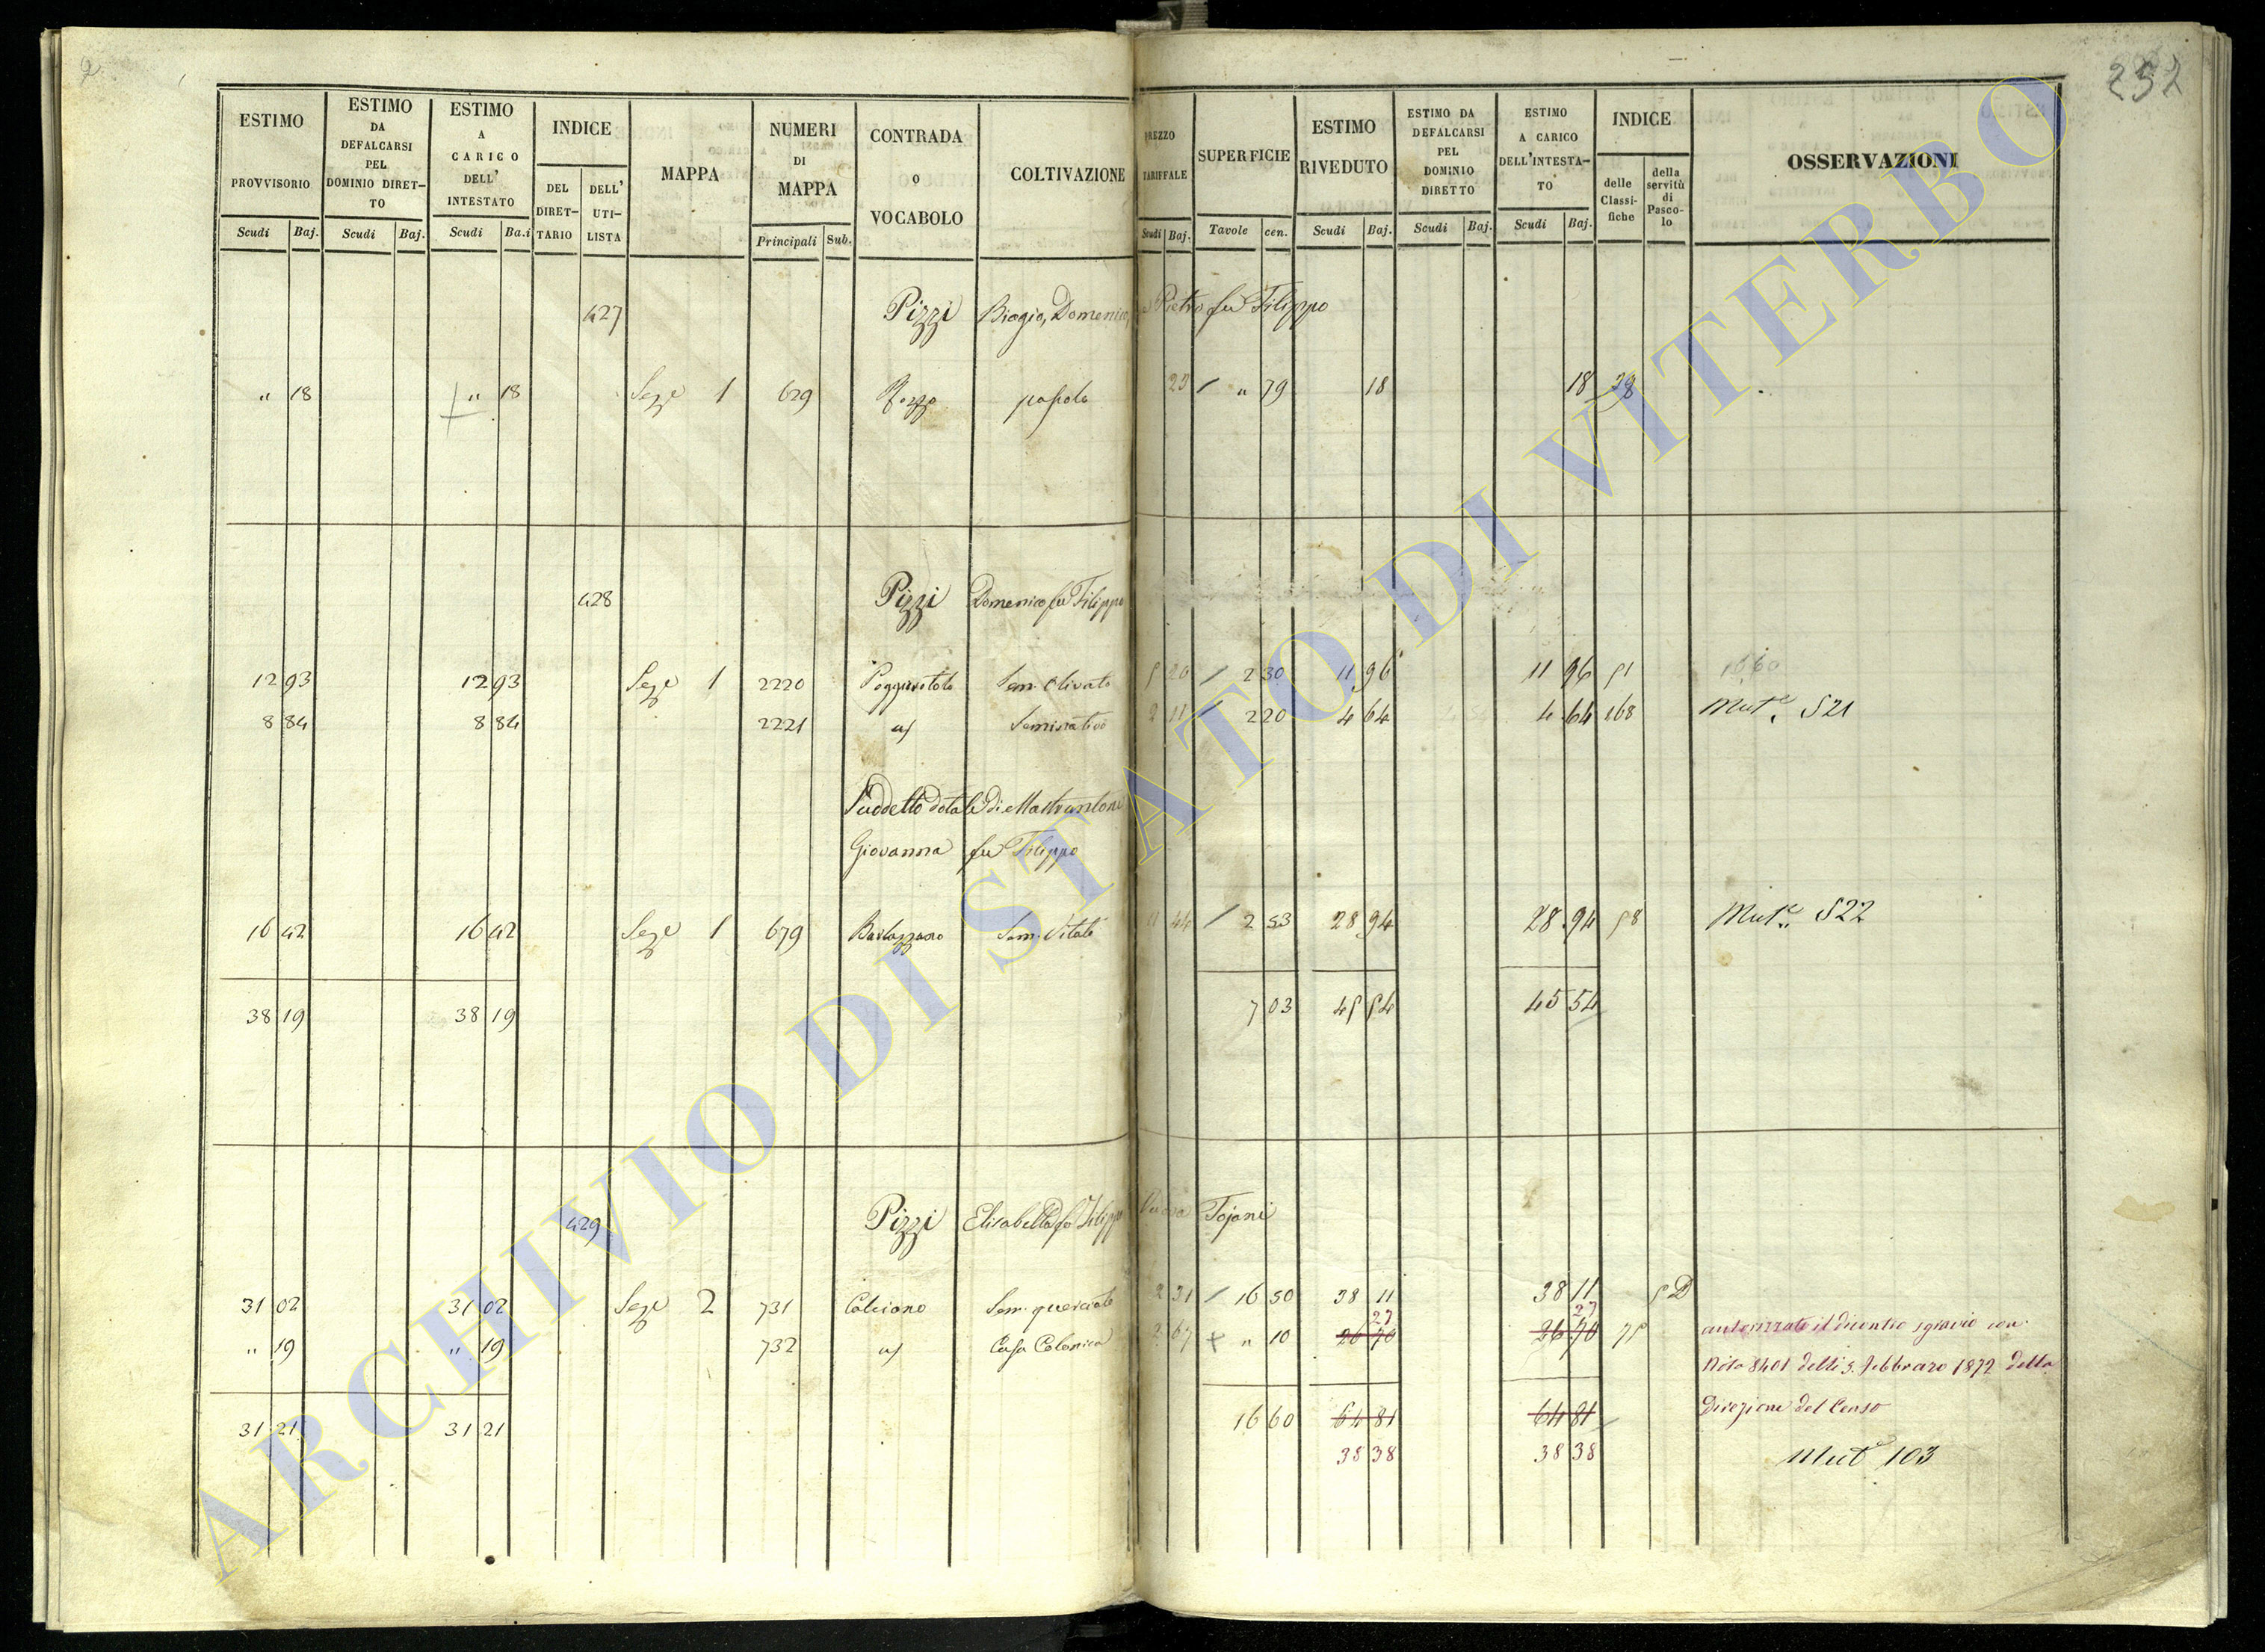 252
ESTIMO PROVVISORIO Scudi Baj.
ESTIMO DA DEFALCARSI PEL DOMINIO DIRET-TO Scudi Baj.
ESTIMO A CARICO DELL' INTESTATO Scudi Ba.i
INDICE DEL DIRET-TARIO DELL' UTI-LISTA
MAPPA
NUMERI DI MAPPA Principali Sub.
CONTRADA O VOCABOLO
COLTIVAZIONE
PREZZO TARIFFALE Scudi Baj.
SUPERFICIE Tavole cen.
ESTIMO RIVEDUTO Scudi Baj.
ESTIMO DA DEFALCARSI PEL DOMINIO DIRETTO Scudi Baj.
ESTIMO A CARICO DELL'INTESTA-TO Scudi Baj.
INDICE delle Classi-fiche della servitù di Pasco-lo
OSSERVAZIONI
427 Pizzi Biagio, Domenico, e Pietro fu Filippo
" 18 " 18 Sezе 1 629 pascolo 23 / " 79 18 18 28
428 Pizzi Domenico fu Filippo
12 93 12 93 Seze 1 2220 Sem. Olivato 5 20 / 2 30 11 96 11 96 51
8 84 8 84 2221 Seminativo 2 11 / 2 20 4 64 4 64 168 Mut.e 521
Suddetto dotale di Mastrantoni
Giovanna fu Filippo
16 42 16 42 Seze 1 679 Sem. Vitato 11 44 / 2 53 28 94 28 94 58 Mut.e 522
38 19 38 19 7 03 45 54 45 54
429 Pizzi Elisabetta fu Filippo Vedova Tojani
31 02 31 02 Seze 2 731 Calciano Sem. querciato 2 31 / 16 50 38 11 38 11 5 D
27 27
" 19 " 19 732 Casa Colonica 2 67 + " 10 26 70 26 70 75 autorizzato il discontro sgravio con
Nota 8401 delli 5. Febbraro 1872 della
31 21 31 21 16 60 64 81 64 81 Direzione del Censo
38 38 38 38 Mut.e 103
ARCHIVIO DI STATO DI VITERBO